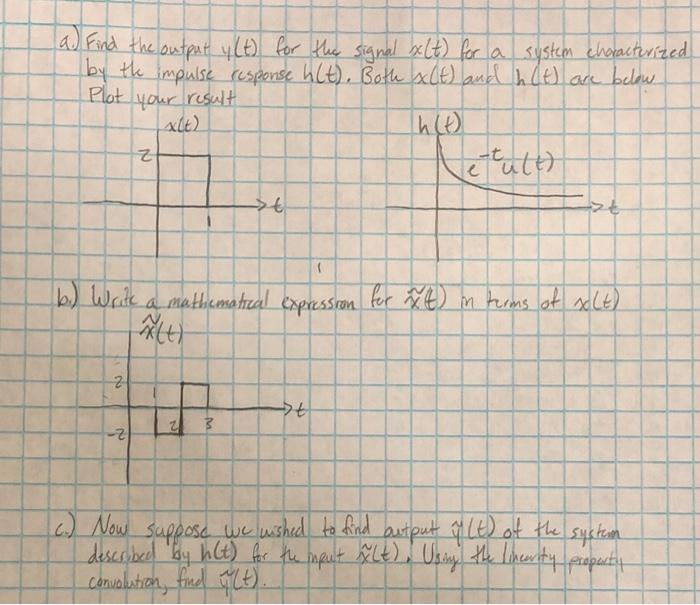 a.) Find the output y(t) for the signal x(t) for a system characterized
by the impulse response h(t). Both x(t) and h(t) are below
Plot your result
x(t)
h(t)
2
e^-t u(t)
t
t
1
b.) Write a mathematical expression for x̃(t) in terms of x(t)
x̃(t)
2
1
t
-2
2
3
c.) Now suppose we wished to find output ỹ(t) of the system
described by h(t) for the input x̃(t). Using the linearity property
convolution, find ỹ(t).